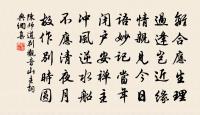 合應生理
過近緣
情親見今日
語妙記當年
閉戶安禪
冲風逆水船
不應清夜月
故作別時圓
陳師道別觀音山主詞
典網集